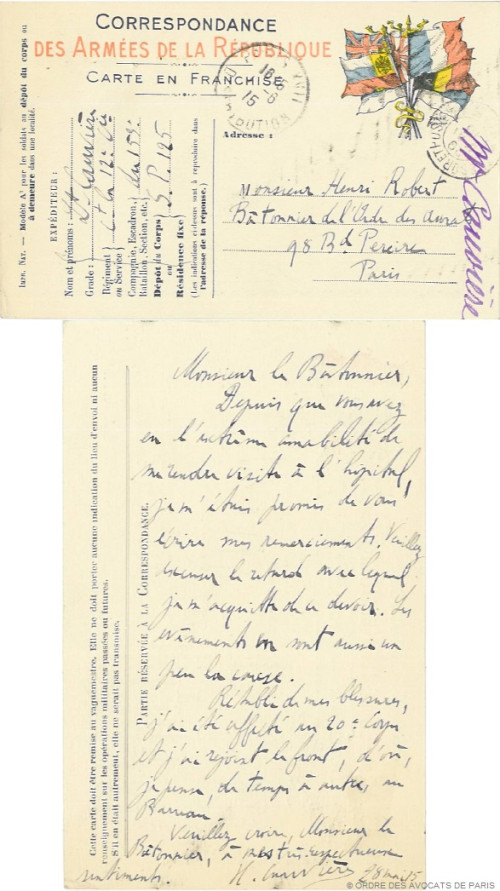 CORRESPONDANCE
DES ARMÉES DE LA RÉPUBLIQUE
CARTE EN FRANCHISE
Impr. Nat. — Modèle A¹ pour les soldats au dépôt du corps ou
à demeure dans une localité.
EXPÉDITEUR :
Nom et prénoms :
Grade :
Régiment
ou Service
Compagnie, Escadron,
Bataillon, Section, etc.
Dépôt du Corps
ou
Résidence fixe
(Les indications ci-dessus sont à reproduire dans
l'adresse de la réponse.)
12e Cie
du 153e
S. P. 125
Adresse :
Monsieur Henri Robert
Bâtonnier de l'Ordre des
98 Bd Pereire
Paris
Cette carte doit être remise au vaguemestre. Elle ne doit porter aucune indication du lieu d'envoi ni aucun
renseignement sur les opérations militaires passées ou futures.
S'il en était autrement, elle ne serait pas transmise.
PARTIE RÉSERVÉE À LA CORRESPONDANCE.
Monsieur le Bâtonnier,
Depuis que vous avez
eu l'extrême amabilité de
me rendre visite à l'hôpital,
je m'étais promis de vous
écrire mes remerciements. Veuillez
excuser le retard avec lequel
je m'acquitte de ce devoir. Les
évènements en sont aussi un
peu la cause.
Rétabli de mes blessures,
j'ai été affecté au 20e Corps
et j'ai rejoint le front, d'où,
je pense, de temps à autre, au
Barreau.
Veuillez croire, Monsieur le
Bâtonnier, à mes très respectueux
sentiments.
© ORDRE DES AVOCATS DE PARIS